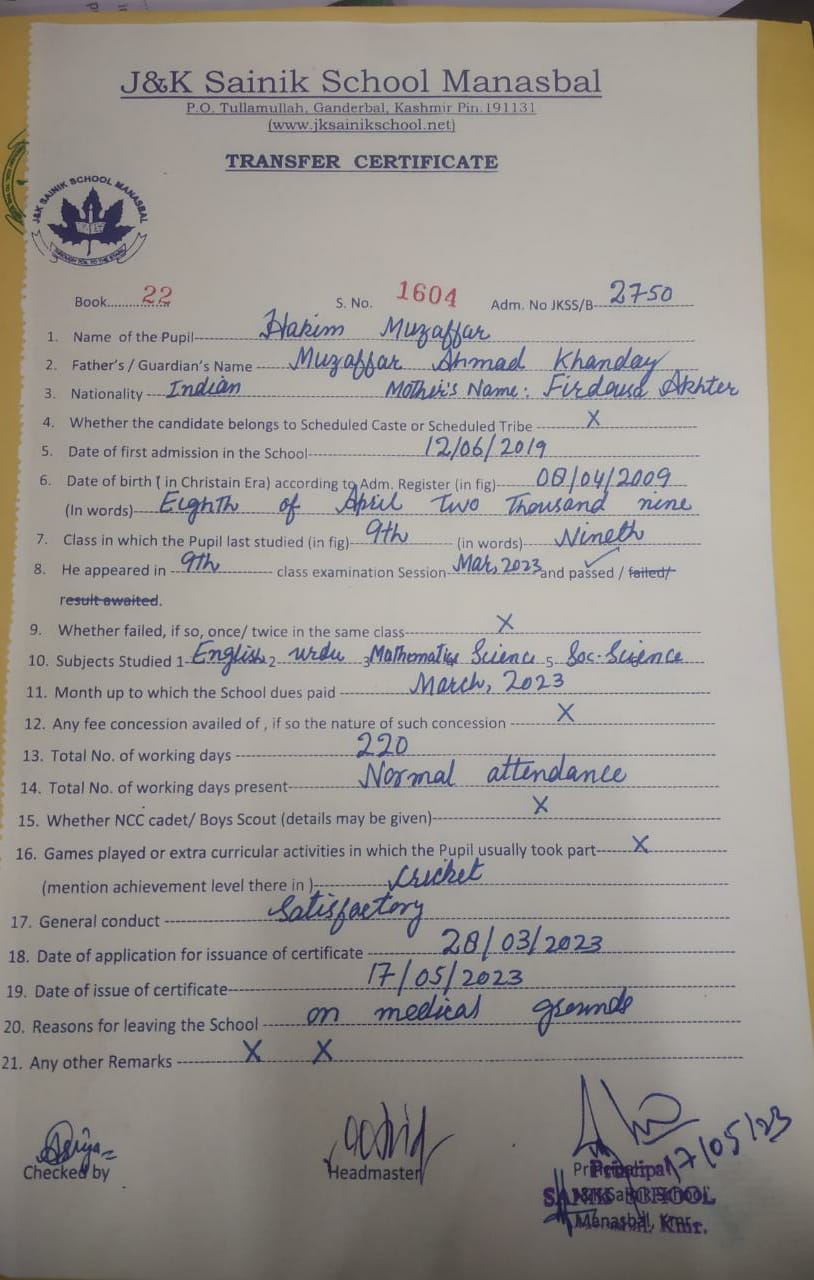 J&K Sainik School Manasbal
P.O. Tullamullah, Ganderbal, Kashmir Pin.191131
(www.jksainikschool.net)
TRANSFER CERTIFICATE
J&K SAINIK SCHOOL MANASBAL
Book 22 S. No. 1604 Adm. No JKSS/B- 2750
1. Name of the Pupil Hakim Muzaffar
2. Father's / Guardian's Name Muzaffar Ahmad Khanday
3. Nationality Indian Mother's Name: Firdousa Akhter
4. Whether the candidate belongs to Scheduled Caste or Scheduled Tribe X
5. Date of first admission in the School 12/06/2019
6. Date of birth ( in Christain Era) according to Adm. Register (in fig) 08/04/2009
(In words) Eighth of April Two Thousand nine
7. Class in which the Pupil last studied (in fig) 9th (in words) Nineth
8. He appeared in 9th class examination Session Mar, 2023 and passed / failed/
result awaited.
9. Whether failed, if so, once/ twice in the same class X
10. Subjects Studied 1 English 2 urdu 3 Mathematics Science 5 Soc. Science
11. Month up to which the School dues paid March, 2023
12. Any fee concession availed of , if so the nature of such concession X
13. Total No. of working days 220
14. Total No. of working days present Normal attendance
15. Whether NCC cadet/ Boys Scout (details may be given) X
16. Games played or extra curricular activities in which the Pupil usually took part X
(mention achievement level there in ) Cricket
17. General conduct Satisfactory
18. Date of application for issuance of certificate 28/03/2023
19. Date of issue of certificate 17/05/2023
20. Reasons for leaving the School on medical grounds
21. Any other Remarks X X
17/05/23
Checked by Headmaster Principal
SAINIK SCHOOL
Manasbal, Kmr.